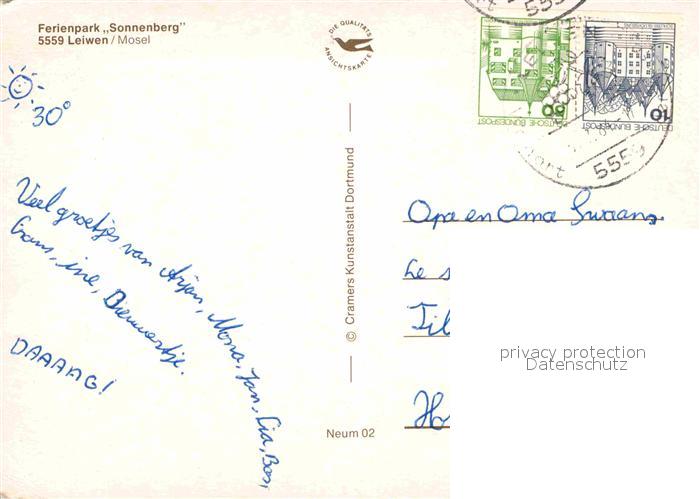 Ferienpark „Sonnenberg"
5559 Leiwen / Mosel
DIE QUALITÄTS
ANSICHTSKARTE
30°
Veel groetjes van Arjan, Mona, Jan, Cia, Bas,
ine, Dieuwertje.
DAAAAG!
© Cramers Kunstanstalt Dortmund
Neum 02
50
DEUTSCHE BUNDESPOST
10
DEUTSCHE BUNDESPOST
5559
Opa en Oma Swaans
Le s
Til
Ho
privacy protection
Datenschutz